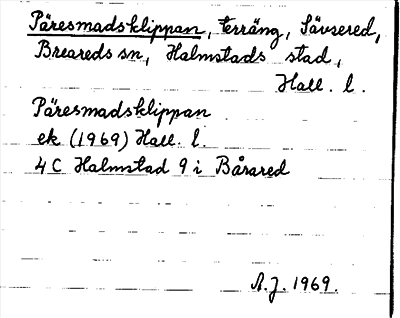 Päresmadsklippan, terräng, Sävsered,
Breareds sn, Halmstads stad,
Hall. l.
Päresmadsklippan
ek (1969) Hall. l.
4 C Halmstad 9 i Bårared
A.J. 1969.